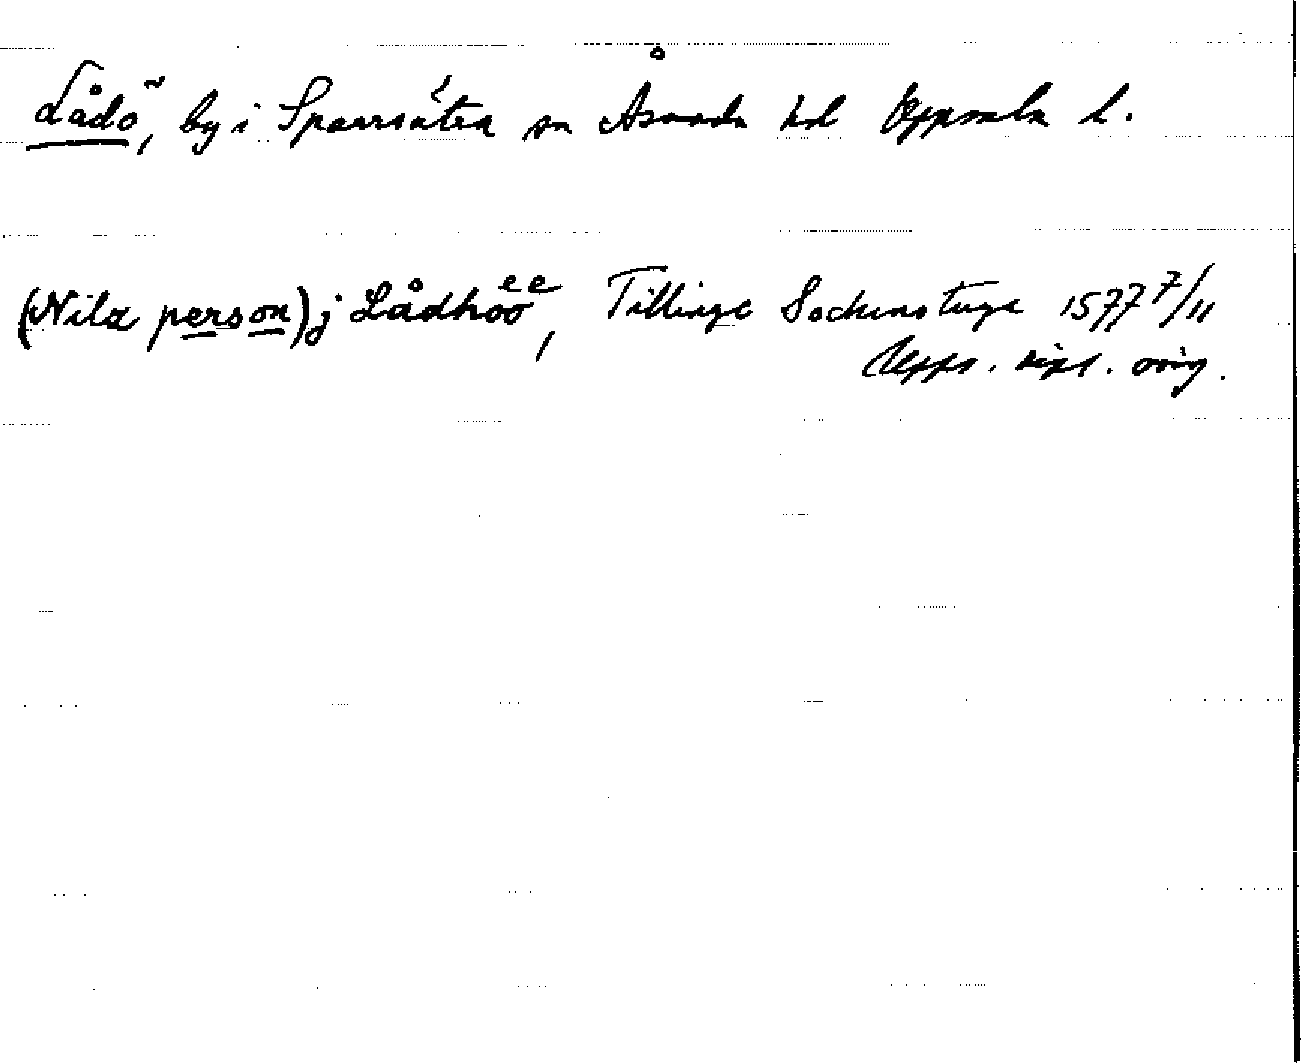 Lådö, by i Sparrsätra sn Åsunda hd Uppsala l.
(Nils person) j Lådhöö, Tillinge Sochnstuge 1577 7/11
Upps. dipl. orig.